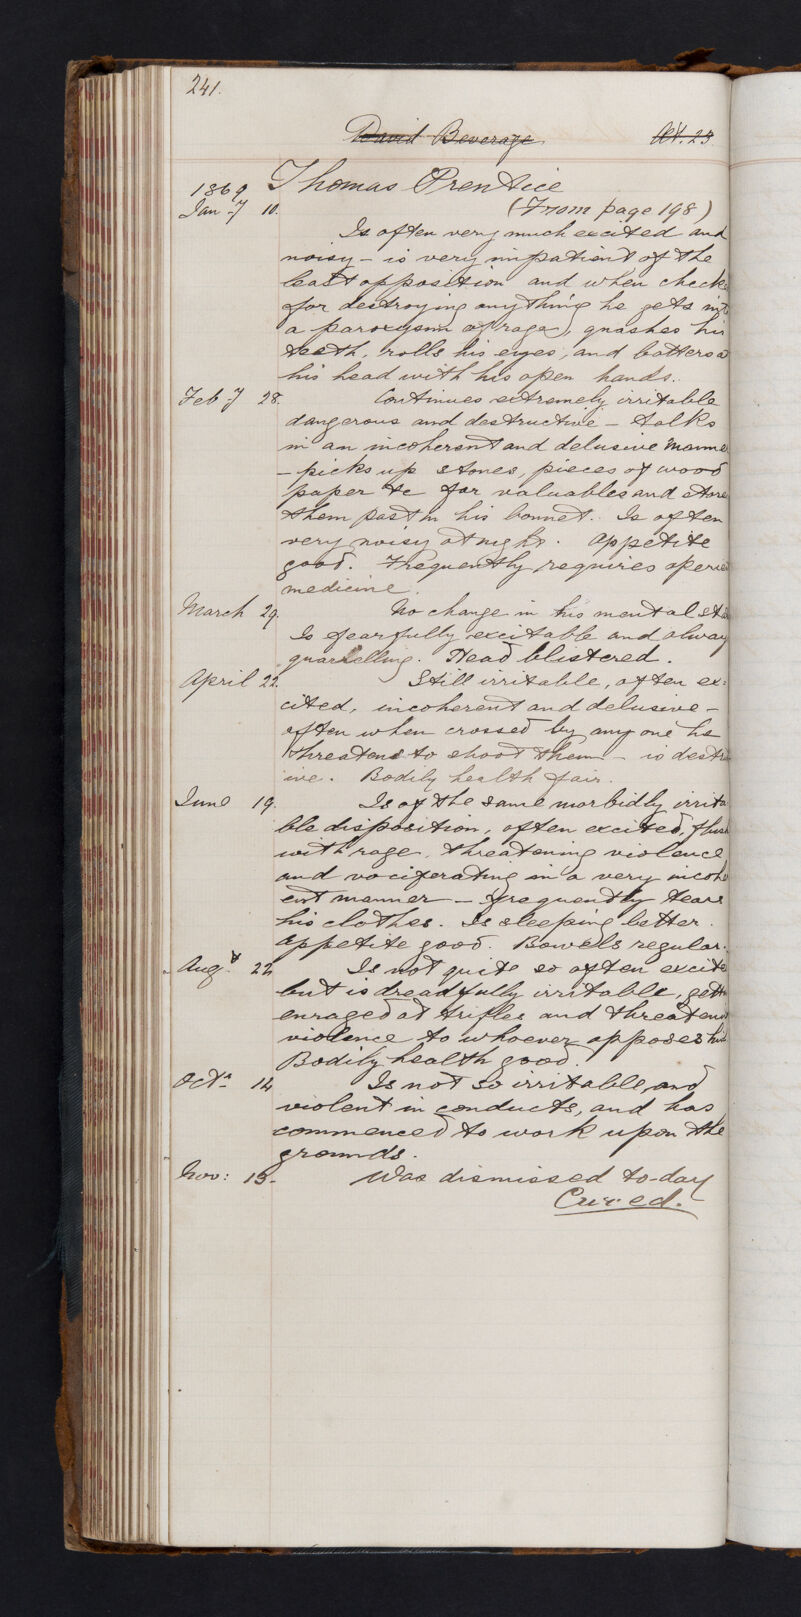 241.
David Beverage Aet. 23
Thomas Prentice
1869
(From page 198)
Jan-y 10.
Is often very much excited and
noisy – is very impatient of the
least opposition and when checke
for destroying anything he gets int
a paroxysm of rage, gnashes his
teeth, rolls his eyes, and batters a
his head with his open hands.
Feb-y 28. Continues extremely irritable
dangerous and destructive – talks
in an incoherent and delusive manne
– picks up stones, pieces of wood
paper &c for valuables and store
them past in his bonnet. Is often
very noisy at night. Appetite
good. Frequently requires aperie
medicine.
March 29. No change in his mental sta
Is fearfully excitable and alway
quarrelling. Head blistered.
April 22. Still irritable, often ex=
cited, incoherent and delusive –
often when crossed by any one he
threatens to shoot them – is destr
ive. Bodily health fair.
June 19. Is of the same morbidly irrita
ble disposition, often excited, flush
with rage, threatening violence
and vociferating in a very incohe
ent manner – frequently tears
his clothes. Is sleeping better.
Appetite good. Bowels regular.
Augt. 22 Is not quite so often excite
but is dreadfully irritable, gett
enraged at trifles and threatens
violence to whoever opposes him
Bodily health good.
Octr. 14 Is not so irritable, and
violent in conducts, and has
commenced to work upon the
grounds.
Nov: 13. Was dismissed to-day
Cured.